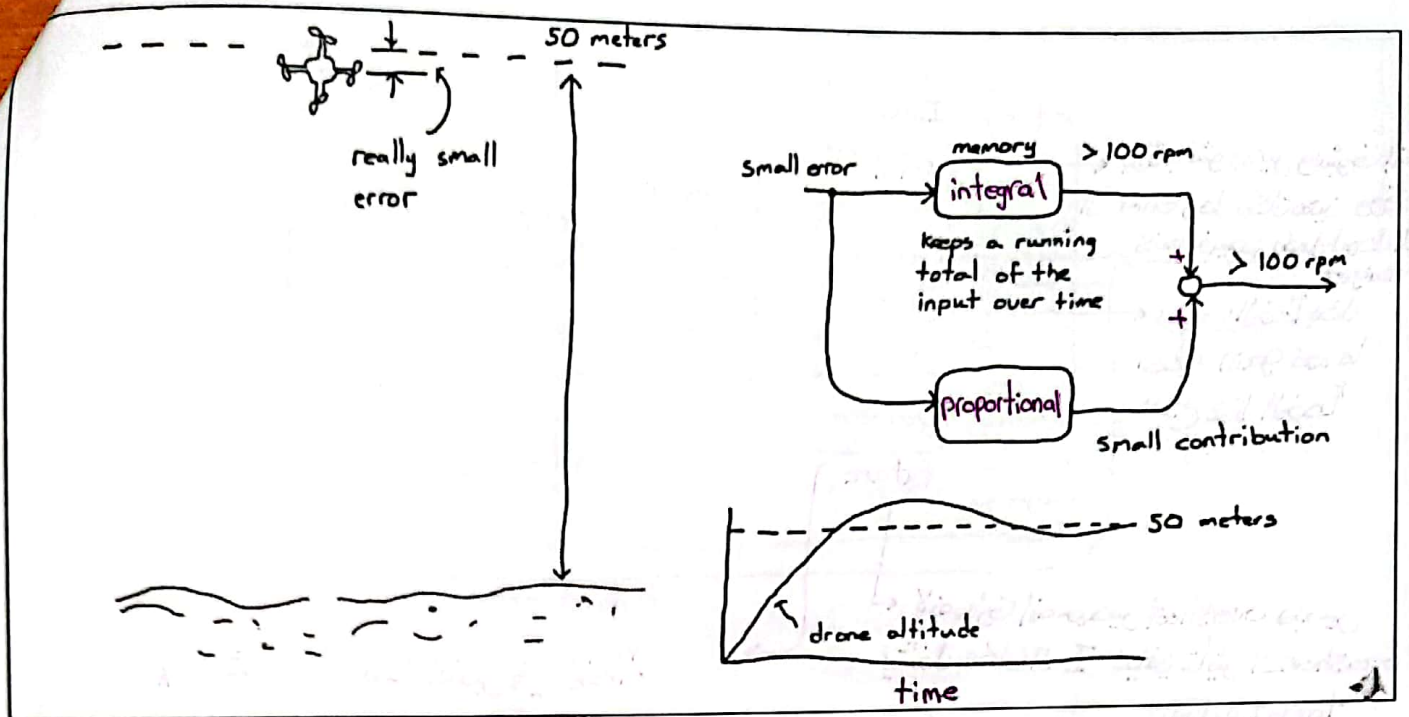 50 meters
really small
error
small error
memory
> 100 rpm
integral
keeps a running
total of the
input over time
+
> 100 rpm
+
proportional
small contribution
50 meters
drone altitude
time